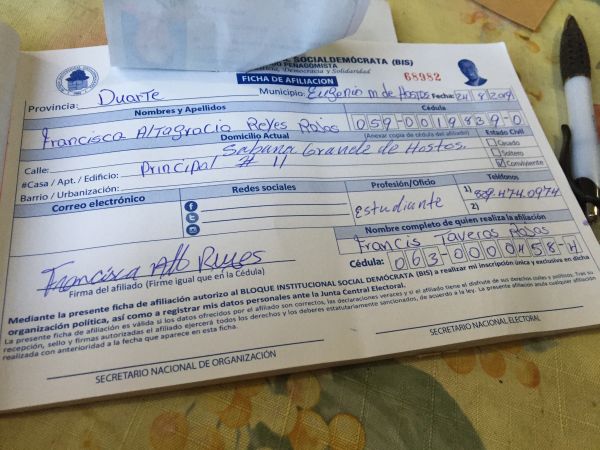 SOCIALDEMÓCRATA (BIS)
PENAGOMISTA
Democracia y Solidaridad
FICHA DE AFILIACION
68982
Provincia: Duarte Municipio: Eugenio M de Hostos Fecha: 24/8/2019
Nombres y Apellidos Cédula
Francisca Altagracia Reyes Rojas 059-0019839-0
Domicilio Actual (Anexar copia de cédula del afiliado) Estado Civil
Calle: Sabana Grande de Hostos. Casado
#Casa / Apt. / Edificio: Principal # 11 Soltero
Barrio / Urbanización: Conviviente
Correo electrónico Redes sociales Profesión/Oficio Teléfonos
Estudiante 1) 809-474-0974
2)
Nombre completo de quien realiza la afiliación
Francis Taveras Rojas
Cédula: 063-0000458-4
Francisca Alt Reyes
Firma del afiliado (Firme igual que en la Cédula)
Mediante la presente ficha de afiliación autorizo al BLOQUE INSTITUCIONAL SOCIAL DEMÓCRATA (BIS) a realizar mi inscripción única y exclusiva en dicha
organización política, así como a registrar mis datos personales ante la Junta Central Electoral.
La presente ficha de afiliación es válida si los datos ofrecidos por el afiliado son correctos, las declaraciones veraces y si el afiliado tiene el disfrute de sus derechos civiles y políticos. Tras su
recepción, sello y firmas autorizadas el afiliado ejercerá todos los derechos y los deberes estatutariamente sancionados, de acuerdo a la ley. La presente afiliación anula cualquier afiliación
realizada con anterioridad a la fecha que aparece en esta ficha.
SECRETARIO NACIONAL DE ORGANIZACIÓN SECRETARIO NACIONAL ELECTORAL